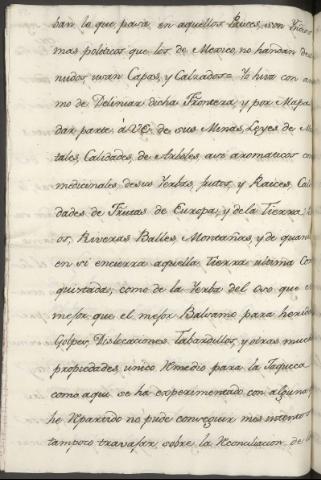 ban lo que pasa, en aquellos Paices, son Yndios
mas politicos que los de Mexico, no handan des
nudos usan Capas, y Calzados = Yo hiva con ani
mo de Deliniar dicha Frontera, y por Mapa
dar parte á V.E. de sus Minas, Leyes de Me
tales, Calidades, de Arboles, asi aromaticos co
medicinales, de sus Yerbas, frutos, y Raices, Cali
dades de Frutas de Europa, y de la Tierra,
os, Riveras Balles, Montañas, y de quan
en si encierra aquella Tierra ultima Con
quistada; como de la Yerba del oso que es
mejor que el mejor Balsamo para herid
Golpes, Dislocaciones, Tabardillos, y otras much
propiedades, unico Remedio para la Jaqueca
como aqui se ha experimentado con alguna
he Repartido no pude conseguir mis intentos
tampoco travajar sobre la Reconciliacion de